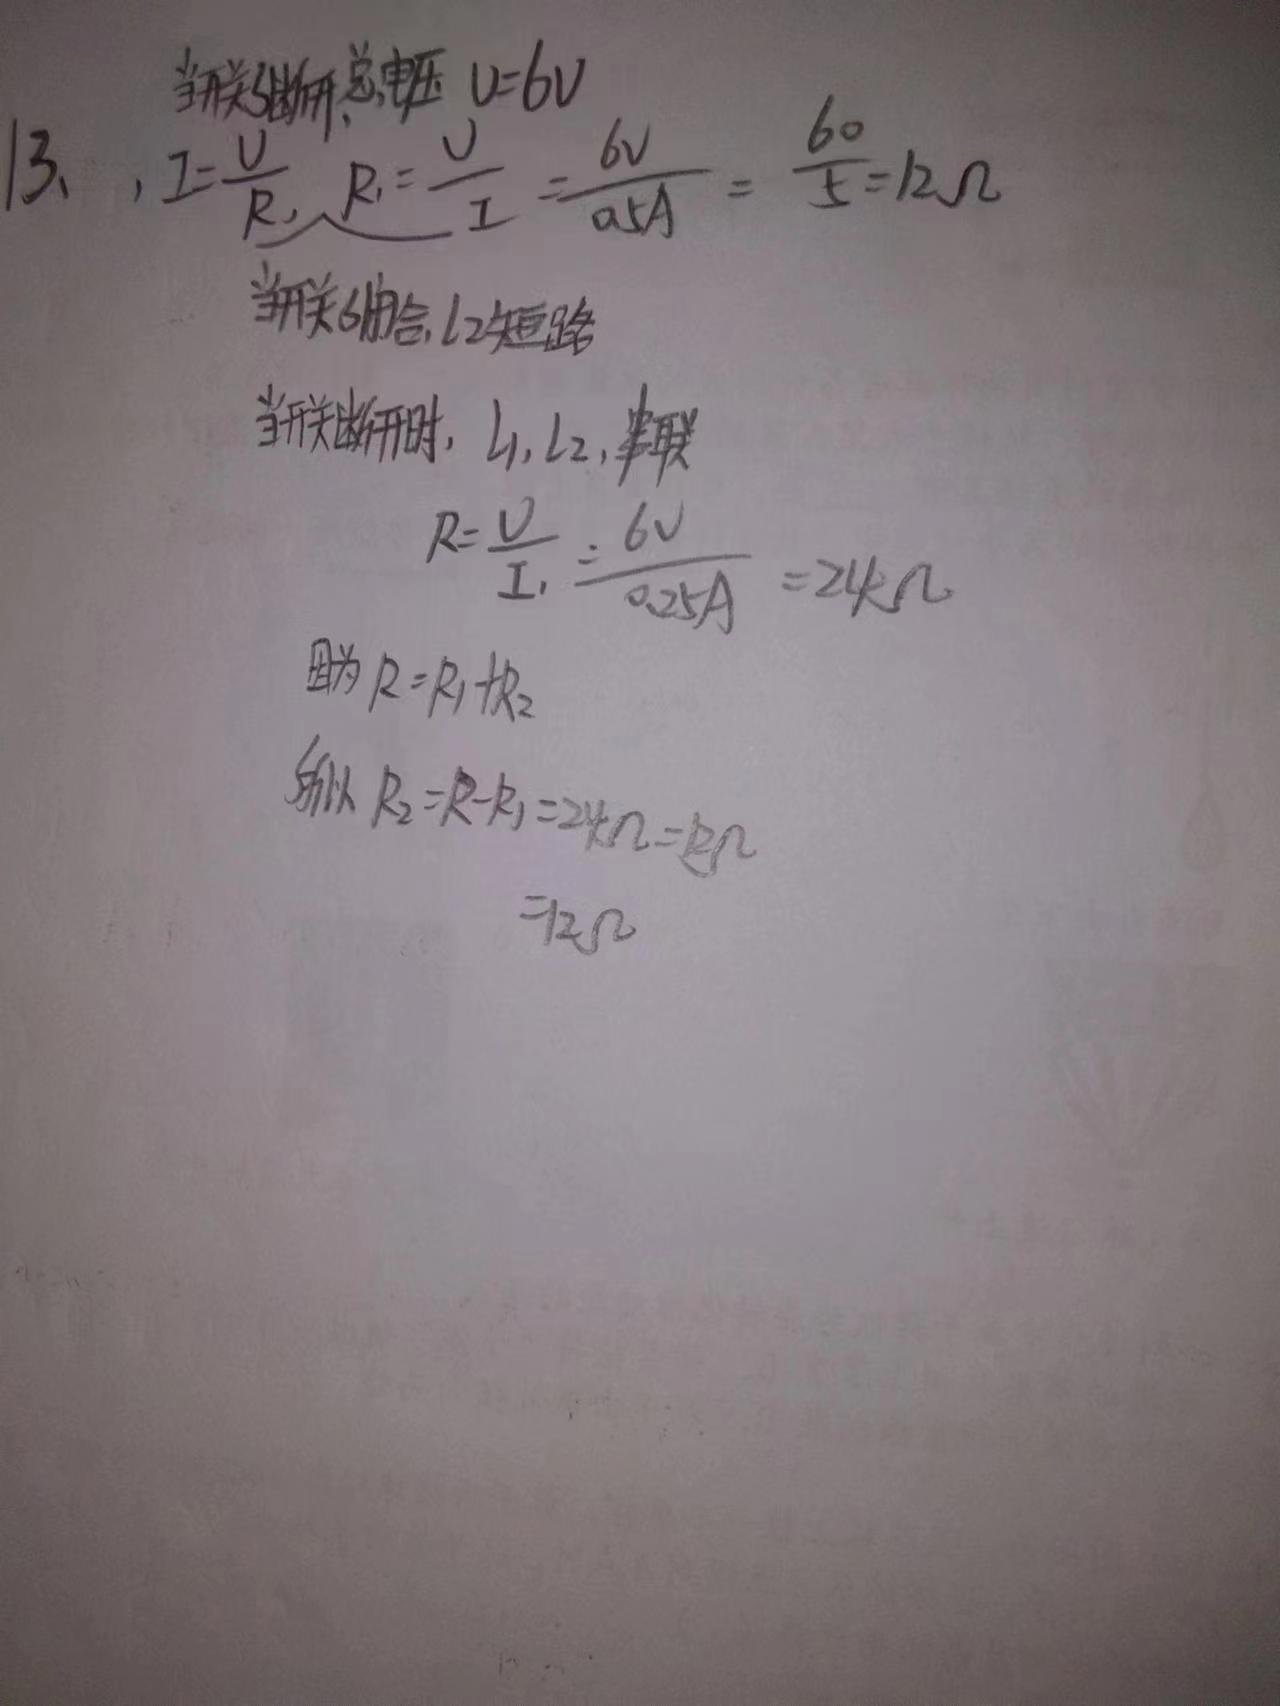 当开关S断开,总电压 U=6V
13、, I=U/R₁ R₁=U/I=6V/0.5A=60/5=12Ω
当开关S闭合,L2短路
当开关断开时,L1,L2,串联
R=U/I₁=6V/0.25A=24Ω
因为R=R₁+R₂
所以R₂=R-R₁=24Ω=12Ω
=12Ω